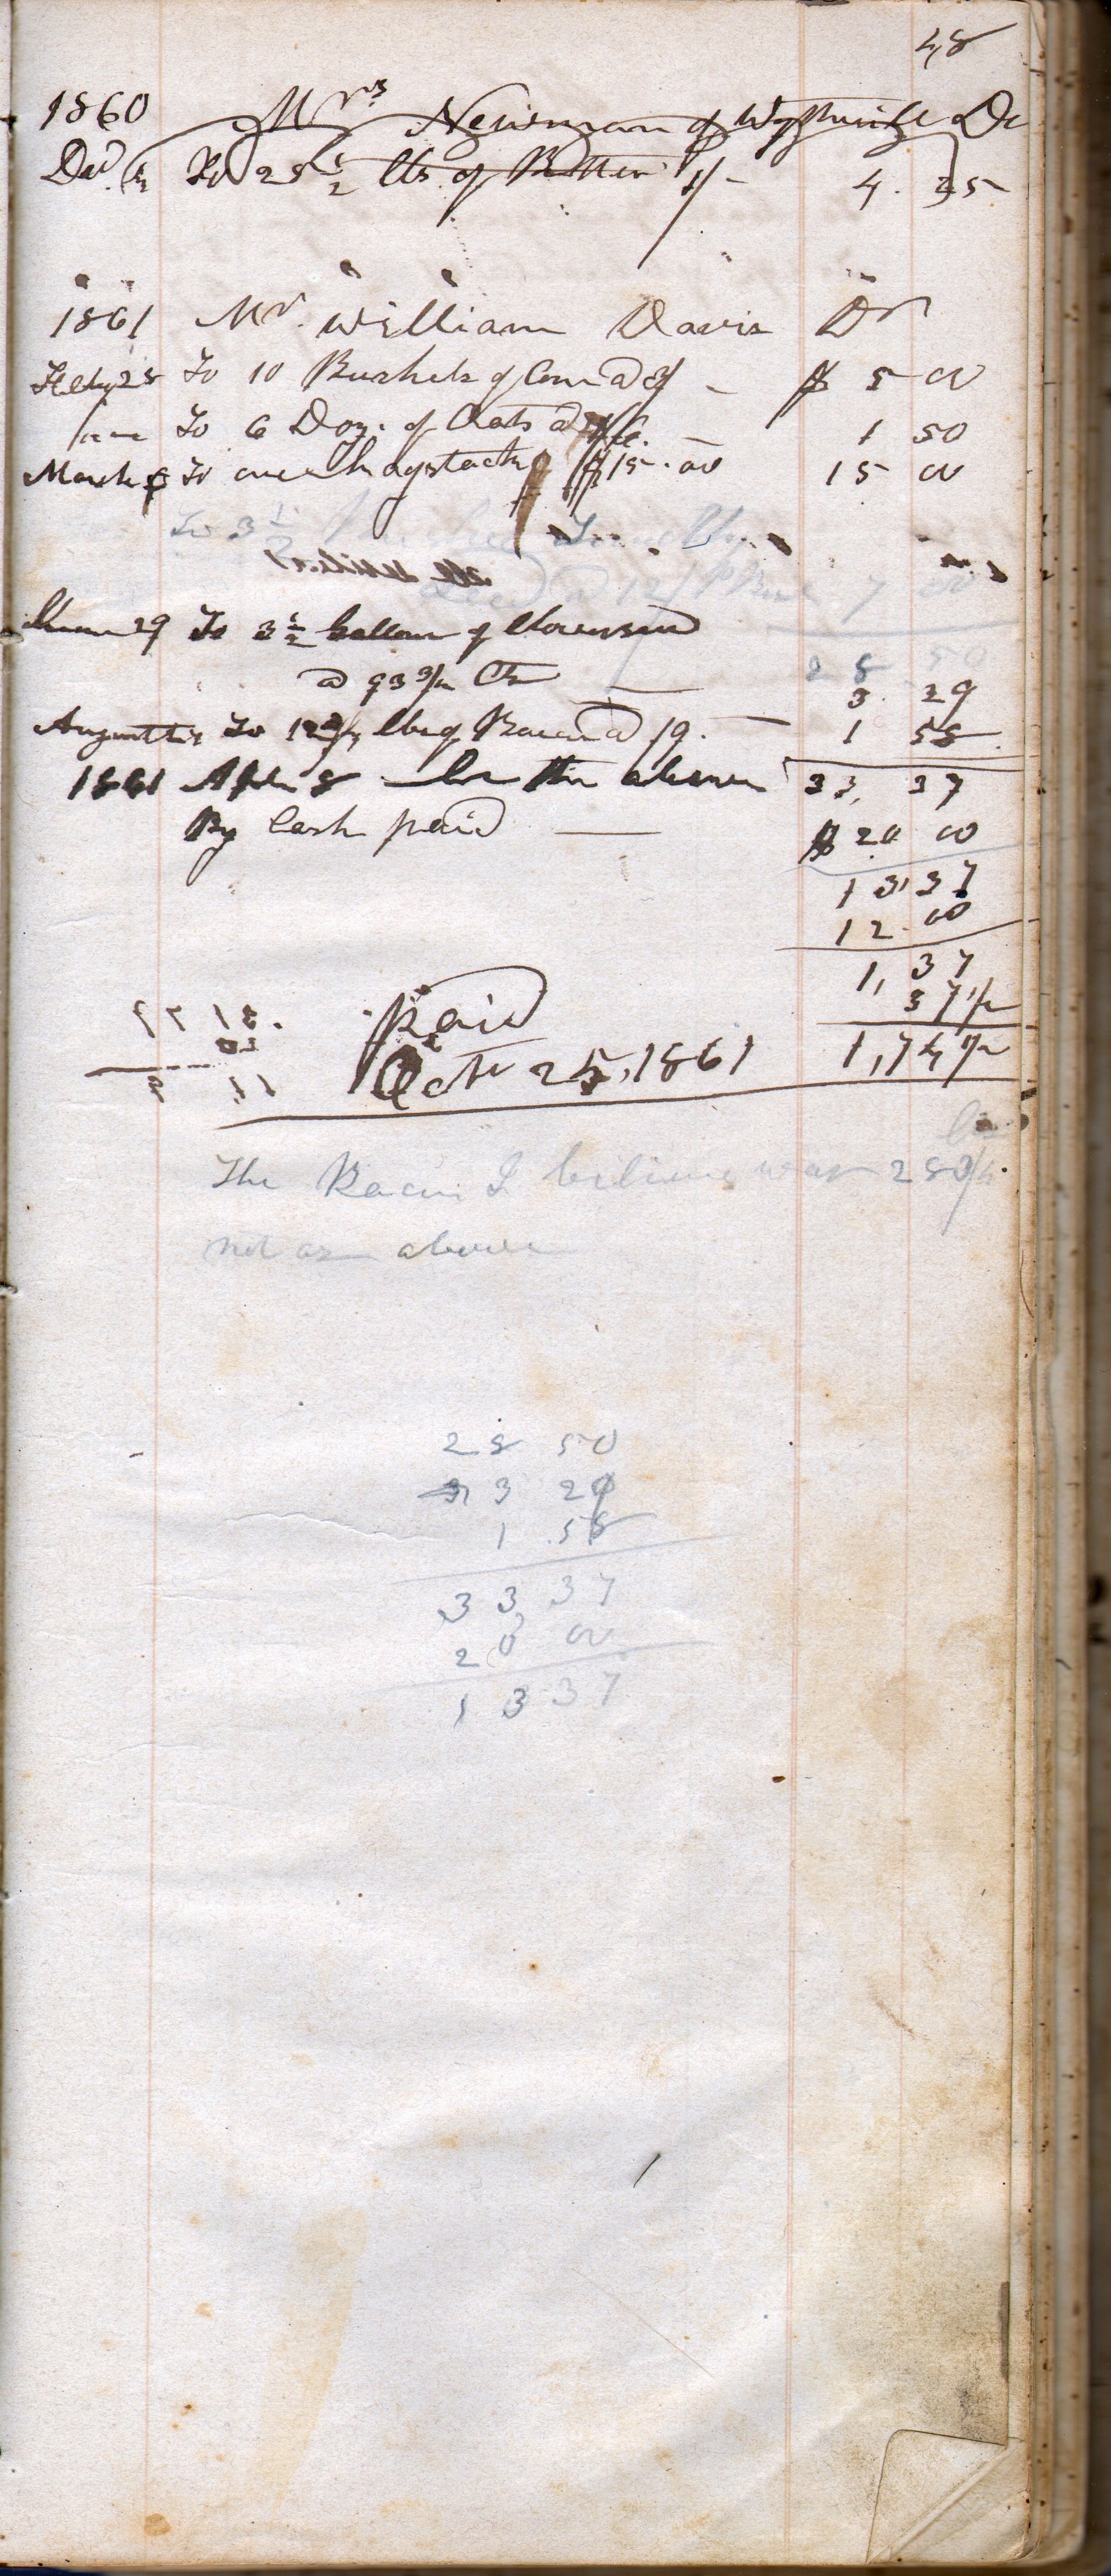 48
1860 Mrs Newman of Wytheville Dr
Decr To 25 1/2 lbs of Butter 1/- 4. 25
1861 Mr. William Davis Dr
Feby 25 To 10 Bushels of Corn @ 3/ - $ 5 00
To 6 Doz. of Oats @ 1 50
March To one haystack $15.00 15 00
To 3 1/2
@ 12/ 7 00
June 29 To 3 1/2 Gallons of
28 50
@ 93 3/4 Cts 3. 29
August To lbs of Bacon @ /9. 1 58
1861 the above 33, 37
By Cash paid $ 20 00
13, 37
12. 00
1, 37
37 1/2
Paid
Octr 25, 1861 1,74 1/2
The Bacon I believe was
not as above
28 50
3 29
1 58
33 37
20 00
13 37